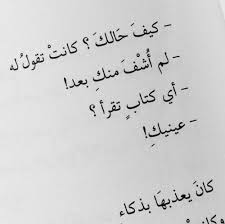 - كيفَ حَالكَ ؟ كانتْ تقولُ له
- لم أُشْفَ منكِ بعد!
- أي كتابٍ تقرأ ؟
- عينيكِ!
كانَ يعذبهَا بذكاء